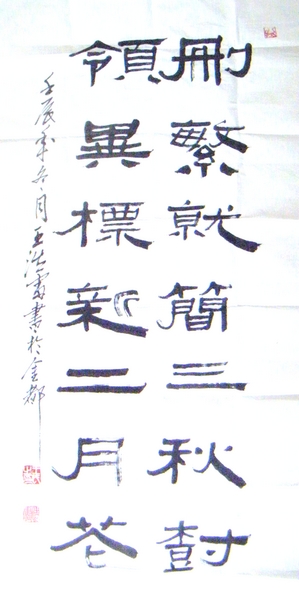 刪繁就簡三秋樹
領異標新二月花
壬辰年冬月王雷書於金都